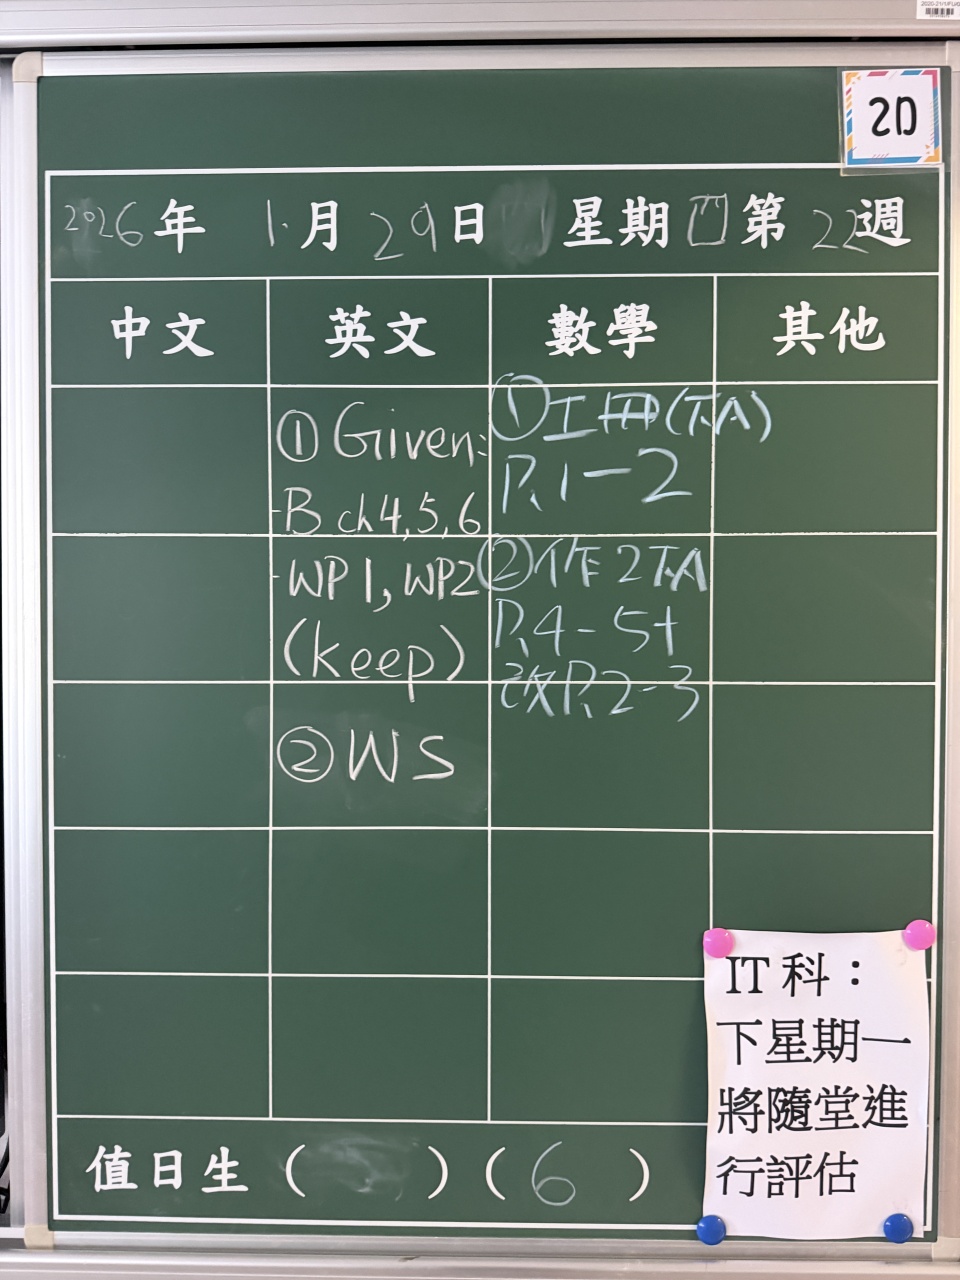 2D
2026年 1月29日 星期四 第22週
中文 英文 數學 其他
① Given:
-B ch4,5,6
-WP1, WP2
(keep)
② WS
①工冊(TA)
P.1-2
②作2TA
P.4-5+
改P.2-3
IT科：
下星期一
將隨堂進
行評估
值日生 ( ) ( 6 )